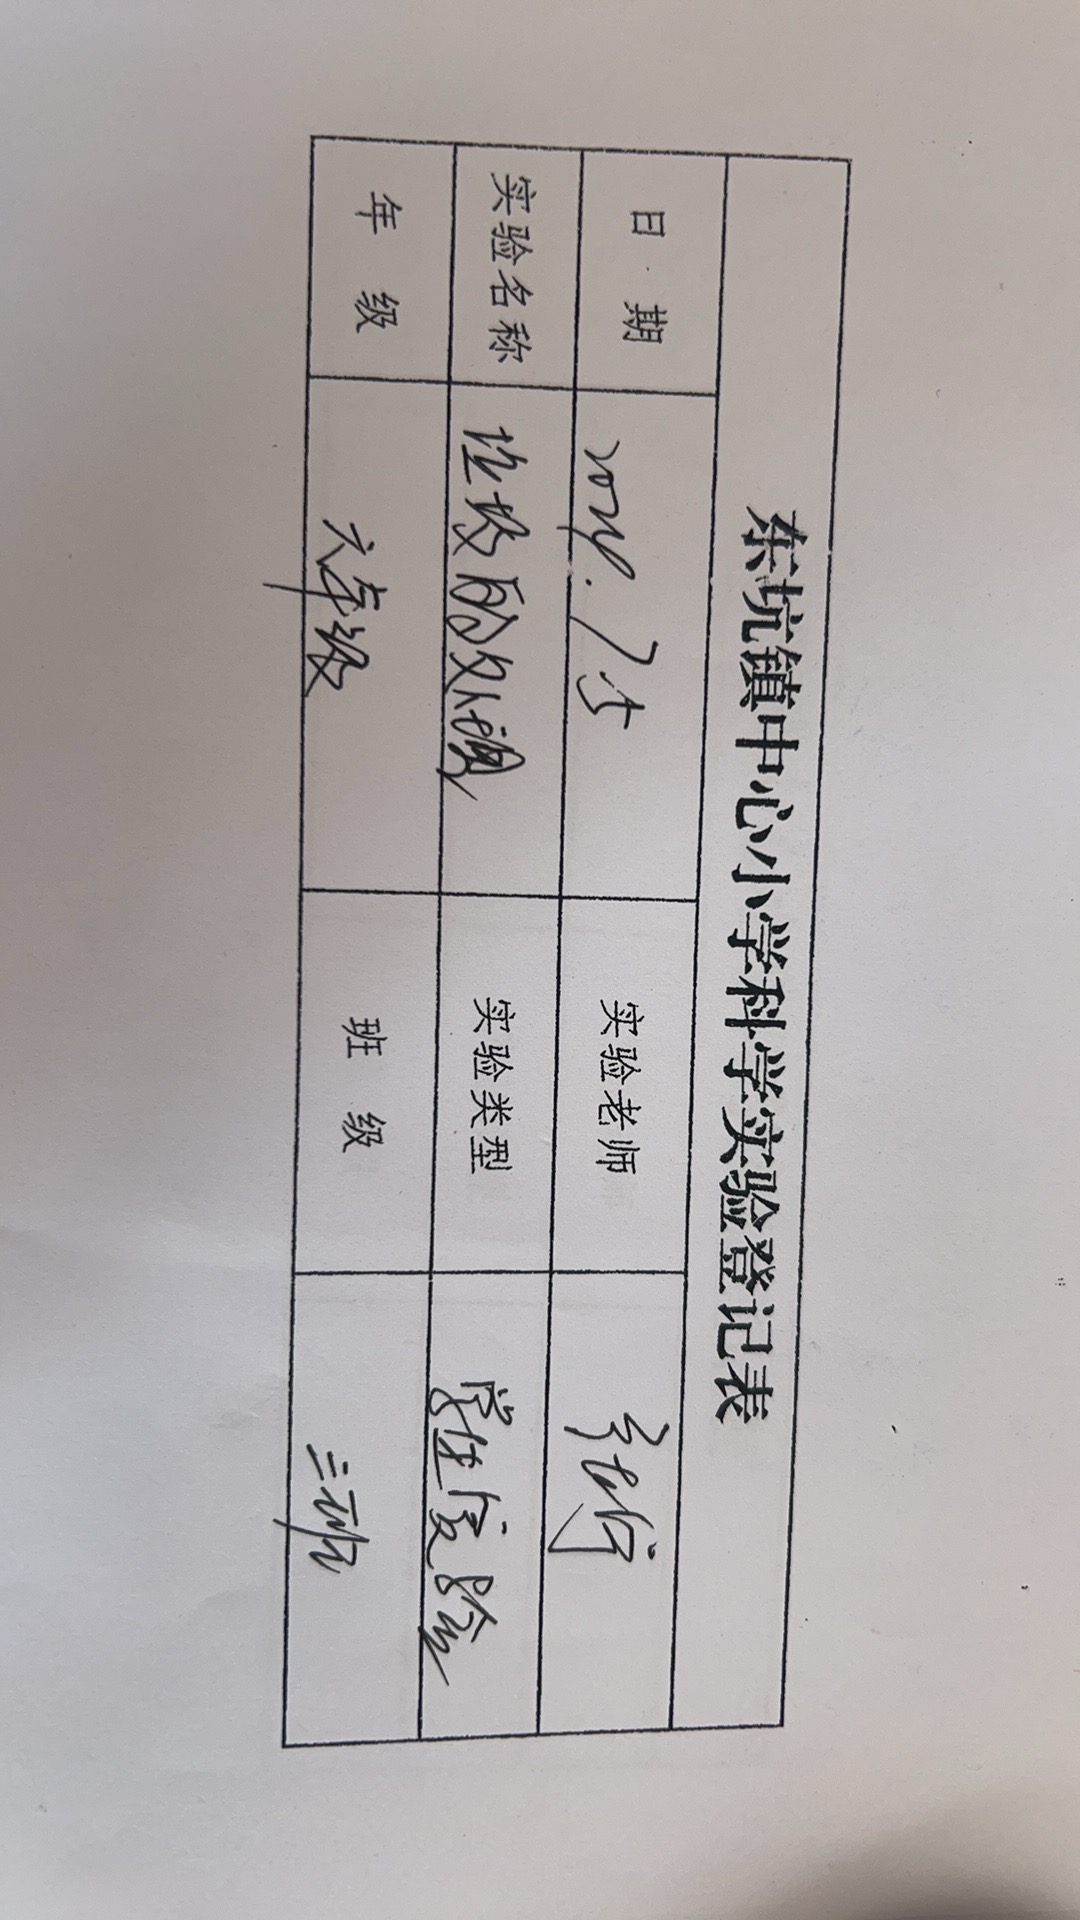 东坑镇中心小学科学实验登记表
日 期 2024.7.5 实验老师
实验名称 垃圾的处理 实验类型 学生实验
年 级 六年级 班 级 三班